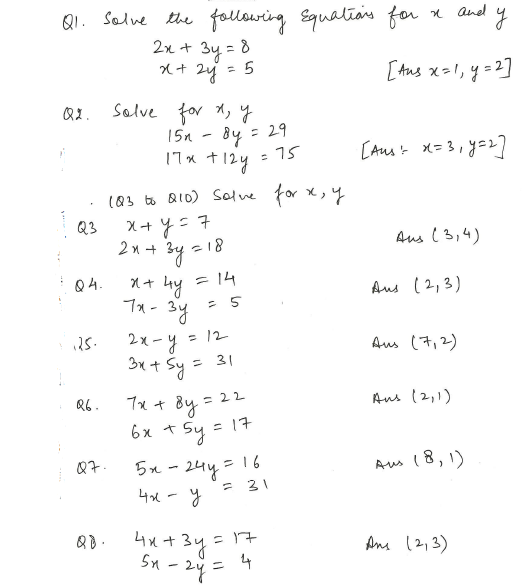 Q1. Solve the following Equations for x and y
2x + 3y = 8
x + 2y = 5 [Ans x=1, y=2]
Q2. Solve for x, y
15x - 8y = 29
17x + 12y = 75 [Ans:- x=3, y=2]
. (Q3 to Q10) Solve for x, y
Q3 x + y = 7
2x + 3y = 18 Ans (3,4)
Q4. x + 4y = 14 Ans (2,3)
7x - 3y = 5
Q5. 2x - y = 12 Ans (7,2)
3x + 5y = 31
Q6. 7x + 8y = 22 Ans (2,1)
6x + 5y = 17
Q7. 5x - 24y = 16 Ans (8,1)
4x - y = 31
Q8. 4x + 3y = 17 Ans (2,3)
5x - 2y = 4